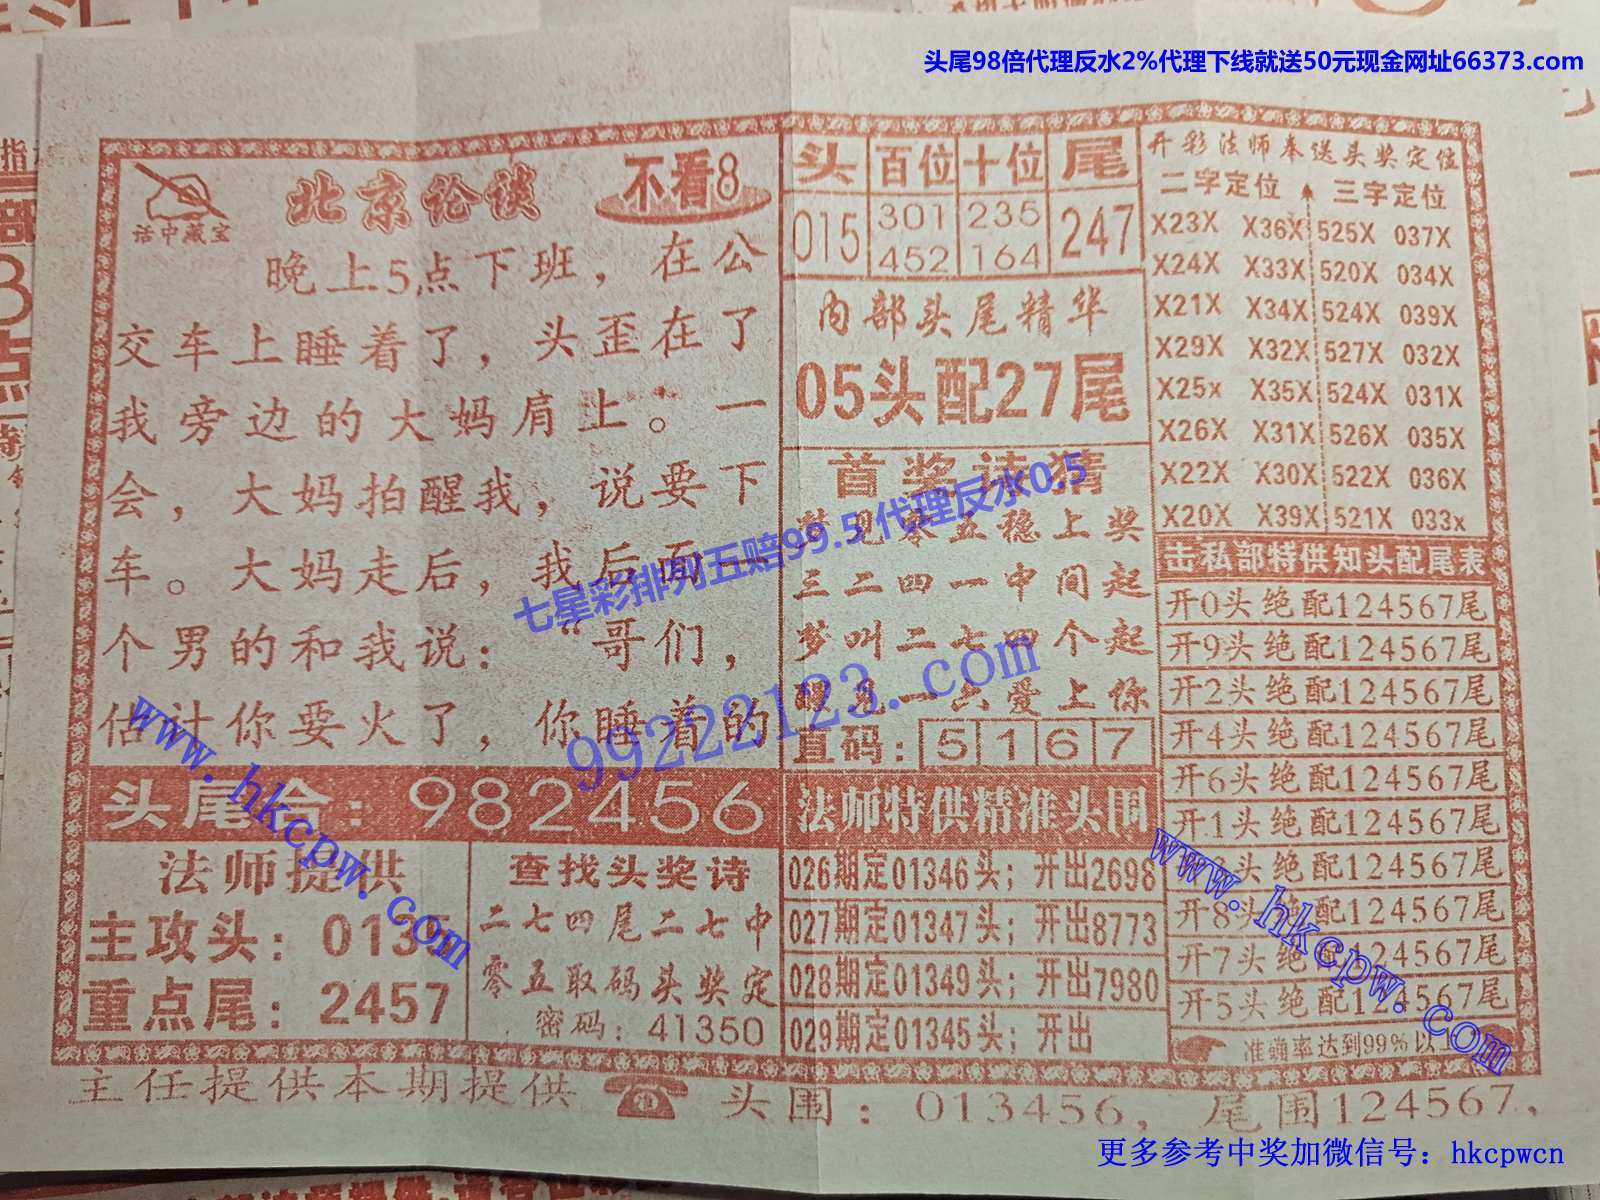 头尾98倍代理反水2%代理下线就送50元现金网址66373.com
话中藏宝
北京论谈
不看8
晚上5点下班，在公
交车上睡着了，头歪在了
我旁边的大妈肩上。一
会，大妈拍醒我，说要下
车。大妈走后，我后面一
个男的和我说：“哥们，
估计你要火了，你睡着的
头尾合：982456
法师提供
主攻头：0135
重点尾：2457
查找头奖诗
二七四尾二七中
零五取码头奖定
密码：41350
头 百位 十位 尾
015 301 235 247
452 164
内部头尾精华
05头配27尾
首奖诗猜
梦见零五稳上奖
三二四一中间起
梦叫二七四个起
眼见一六爱上你
直码：5 1 6 7
法师特供精准头围
026期定01346头；开出2698
027期定01347头；开出8773
028期定01349头；开出7980
029期定01345头；开出
开彩法师奉送头奖定位
二字定位 三字定位
X23X X36X 525X 037X
X24X X33X 520X 034X
X21X X34X 524X 039X
X29X X32X 527X 032X
X25x X35X 524X 031X
X26X X31X 526X 035X
X22X X30X 522X 036X
X20X X39X 521X 033x
击私部特供知头配尾表
开0头绝配124567尾
开9头绝配124567尾
开2头绝配124567尾
开4头绝配124567尾
开6头绝配124567尾
开1头绝配124567尾
头绝配124567尾
开8头绝配124567尾
开7头绝配124567尾
开5头绝配124567尾
准确率达到99%以上
主任提供本期提供 头围：013456，尾围124567，
七星彩排列五赔99.5代理反水0.5
99222123.com
www.hkcpw.com
www.hkcpw.com
更多参考中奖加微信号：hkcpwcn